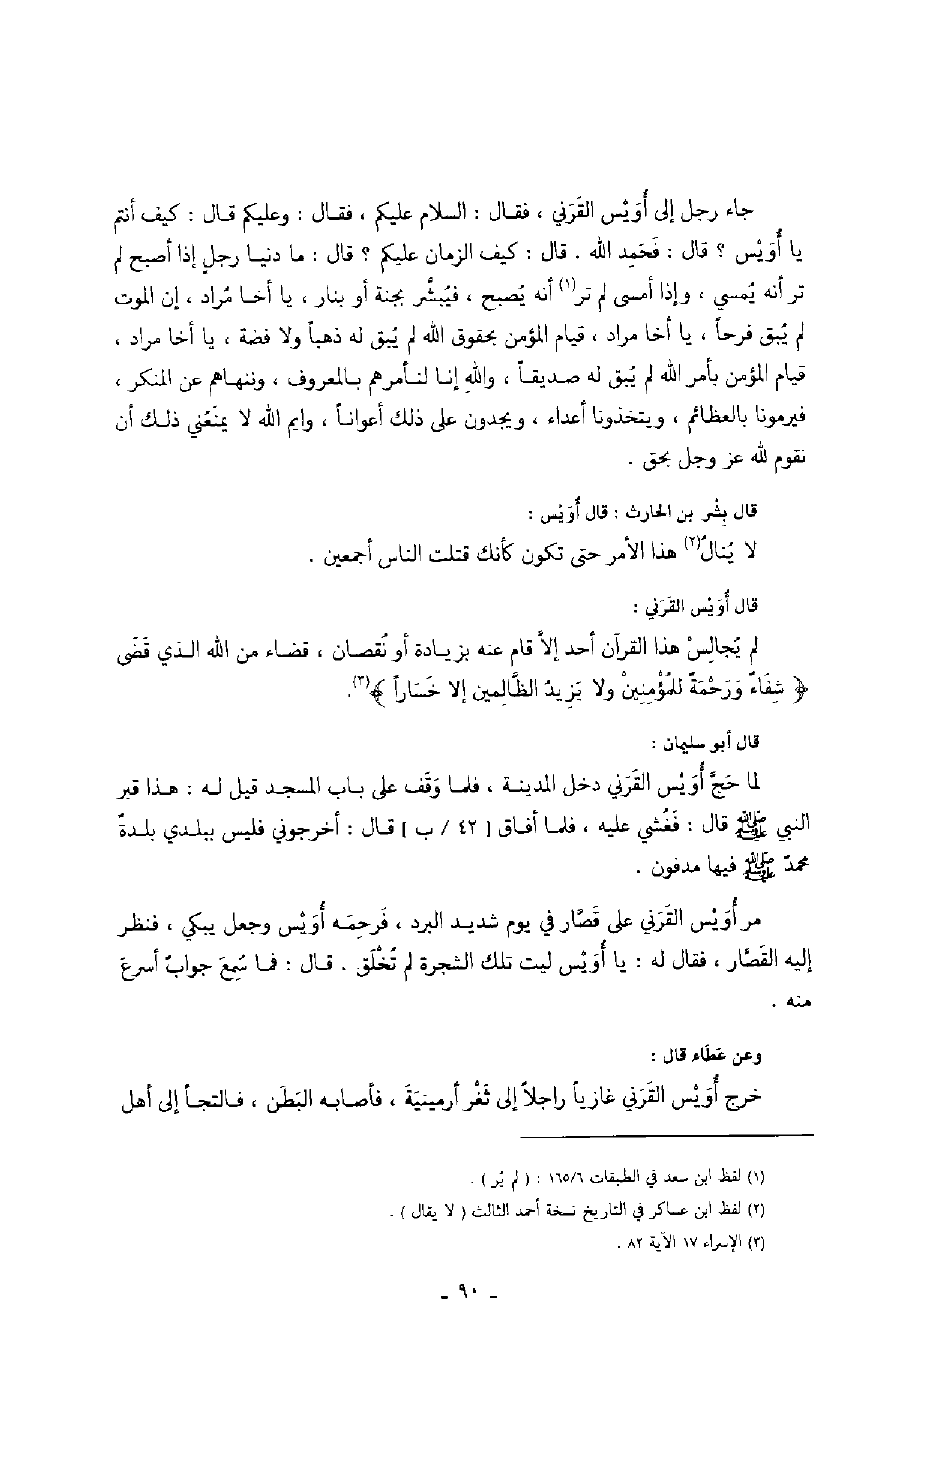 جاء رجل إلى أُوَيْس القَرَني ، فقال : السلام عليكم ، فقال : وعليكم قال : كيف أنتم
يا أُوَيْس ؟ قال : فَحَمِد الله . قال : كيف الزمان عليكم ؟ قال : ما دنيا رجلٍ إذا أصبح لم
تر أنه يُمسي ، وإذا أمسى لم تر(١) أنه يُصبح ، فيُبشَّر بجنة أو بنار ، يا أخا مُراد ، إن الموت
لم يُبق فرحاً ، يا أخا مراد ، قيام المؤمن بحقوق الله لم يُبق له ذهباً ولا فضة ، يا أخا مراد ،
قيام المؤمن بأمر الله لم يُبق له صديقاً ، واللهِ إنا لنأمرهم بالمعروف ، وننهاهم عن المنكر ،
فيرمونا بالعظائم ، ويتخذونا أعداء ، ويجدون على ذلك أعواناً ، وايم الله لا يمنَعُني ذلك أن
نقوم لله عز وجل بحق .
قال بِشْر بن الحارث : قال أُوَيْس :
لا يُنالُ(٢) هذا الأمر حتى تكون كأنك قتلت الناس أجمعين .
قال أُوَيْس القَرَني :
لم يُجالِسْ هذا القرآن أحد إلاَّ قام عنه بزيادة أو نُقصان ، قضاء من الله الذي قَضَى
﴿ شِفَاءٌ وَرَحْمَةٌ للمُؤْمِنِينْ ولا يَزِيدُ الظَّالِمين إلا خَسَاراً ﴾(٣).
قال أبو سليمان :
لما حَجَّ أُوَيْس القَرَني دخل المدينة ، فلما وَقَف على باب المسجد قيل له : هذا قبر
النبي ﷺ قال : فَغُشي عليه ، فلما أفاق [ ٤٢ / ب ] قال : أخرجوني فليس ببلدي بلدةٌ
محمدٌ ﷺ فيها مدفون .
مر أُوَيْس القَرَني على قَصَّار في يوم شديد البرد ، فَرحِمَه أُوَيْس وجعل يبكي ، فنظر
إليه القَصَّار ، فقال له : يا أُوَيْس ليت تلك الشجرة لم تُخْلَق . قال : فما سُمِعَ جوابٌ أسرعَ
منه .
وعن عَطَاء قال :
خرج أُوَيْس القَرَني غازياً راجلاً إلى ثَغْر أرمينيَةَ ، فأصابه البَطَن ، فالتجأ إلى أهل
(١) لفظ ابن سعد في الطبقات ١٦٥/٦ : ( لم يُر ) .
(٢) لفظ ابن عساكر في التاريخ نسخة أحمد الثالث ( لا يقال ) .
(٣) الإسراء ١٧ الآية ٨٢ .
- ٩٠ -